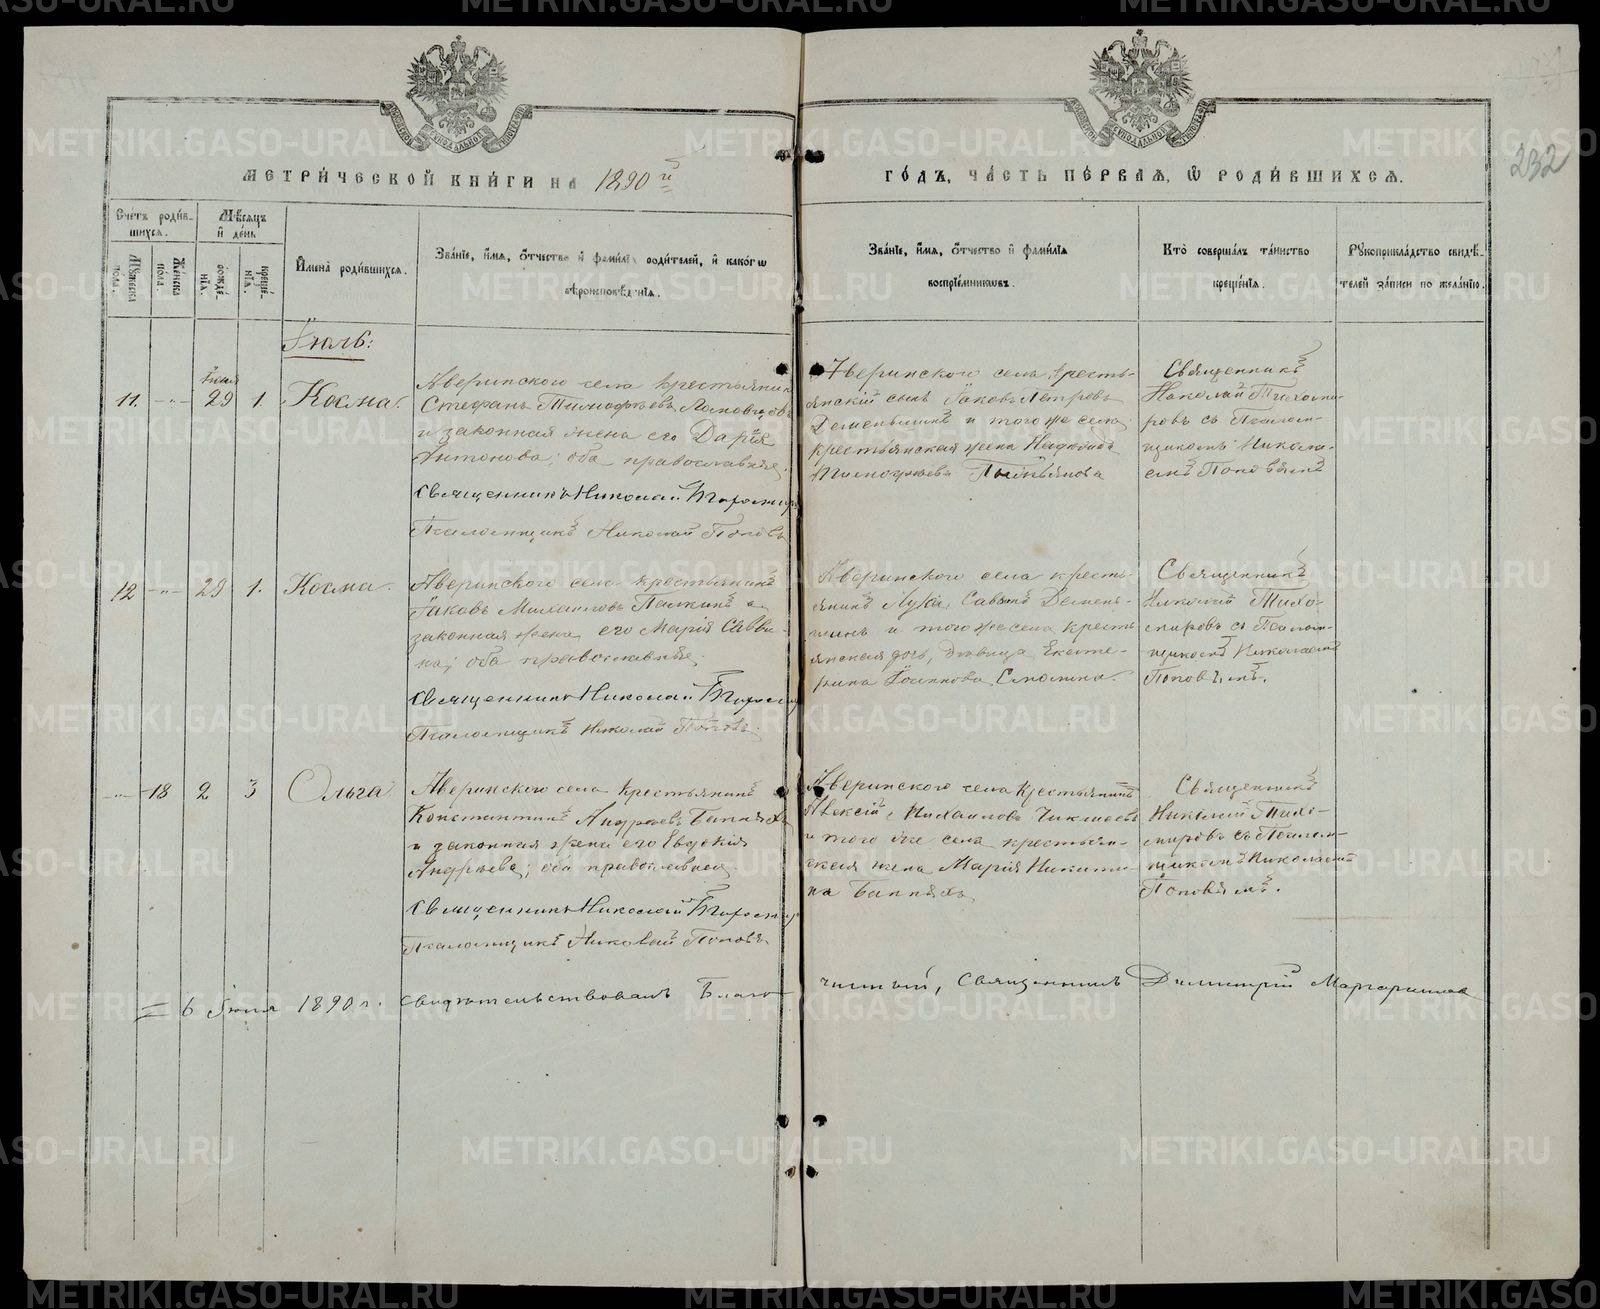 МЕТРИ́ЧЕСКОЙ КНИ́ГИ НА 1890 й
ГО́ДЪ, ЧА́СТЬ ПЕ́РВАЯ, Ѡ РОДИ́ВШИХСЯ.
232
Сче́тъ роди́в-
шихся.
Мѣ́сяцъ
и де́нь
Му́жеска по́ла.
Же́нска по́ла.
рожде́-
нїя.
креще́-
нїя.
Имена̀ роди́вшихся.
Зва́нїе, и́мя, о́тчество и фами́лїя роди́телей, и како́гѡ
вѣроисповѣ́данїя.
Зва́нїе, и́мя, о́тчество и фами́лїя
воспрїе́мниковъ.
Кто̀ соверша́лъ та́инство
креще́нїя.
Рукоприкла́дство свидѣ́-
телей за́писи по жела́нїю.
Іюль:
11. -„- Іюня 29 1. Косма.
Аверинского села крестьянинъ
Стефанъ Тимофѣевъ
и законная жена его Дарія
Антонова; оба православные.
Священникъ Николай Тихомир
Псаломщикъ Николай Поповъ
Аверинского села, кресть-
янскій сынъ Іаковъ Петровъ
Деменьшинъ и того же села
крестьянская жена
Тимофѣева
Священникъ
Николай Тихоми-
ровъ съ Псалом-
щикомъ Никола-
емъ Поповымъ
12 -„- 29 1. Косма.
Аверинского села крестьянинъ
Іаковъ Михаиловъ и
законная жена его Марія Савви-
на; оба православные.
Священникъ Николай Тихомир
Псаломщикъ Николай Поповъ.
Аверинского села кресть-
янинъ Лука Саввинъ Демень-
шинъ и того же села кресть-
янская дочь, дѣвица Екате-
рина Іоаннова
Священникъ
Николай Тихо-
мировъ съ Псалом-
щикомъ Николаемъ
Поповымъ.
-„- 18 2 3 Ольга
Аверинского села крестьянинъ
Константинъ Андреевъ Банныхъ
и законная жена его Евдокія
Андреева; оба православные.
Священникъ Николай Тихомир
Псаломщикъ Николай Поповъ
Аверинского села крестьянинъ
Алексій Михаиловъ
и того же села крестьян-
ская жена Марія Никити-
на Банныхъ
Священникъ
Николай Тихо-
мировъ съ Псалом-
щикомъ Николаемъ
Поповымъ.
= 6 Іюля 1890 г. свидѣтельствовалъ Благо-
чинный, Священникъ Димитрій Маргаритовъ